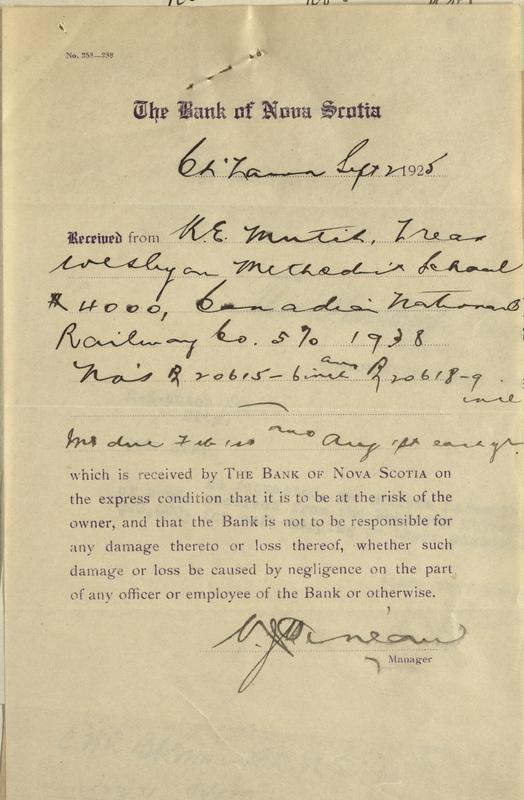 No. 258—258
The Bank of Nova Scotia
Ottawa Sept 2 1925
Received from K.E. Treas
Wesleyan Methodist School
$4000, Canadian National
Railway Co. 5% 1938
No's R 20615-6 incl and R 20618-9
incl
Int due Feb 1st and Aug 1st each yr.
which is received by THE BANK OF NOVA SCOTIA on
the express condition that it is to be at the risk of the
owner, and that the Bank is not to be responsible for
any damage thereto or loss thereof, whether such
damage or loss be caused by negligence on the part
of any officer or employee of the Bank or otherwise.
Manager